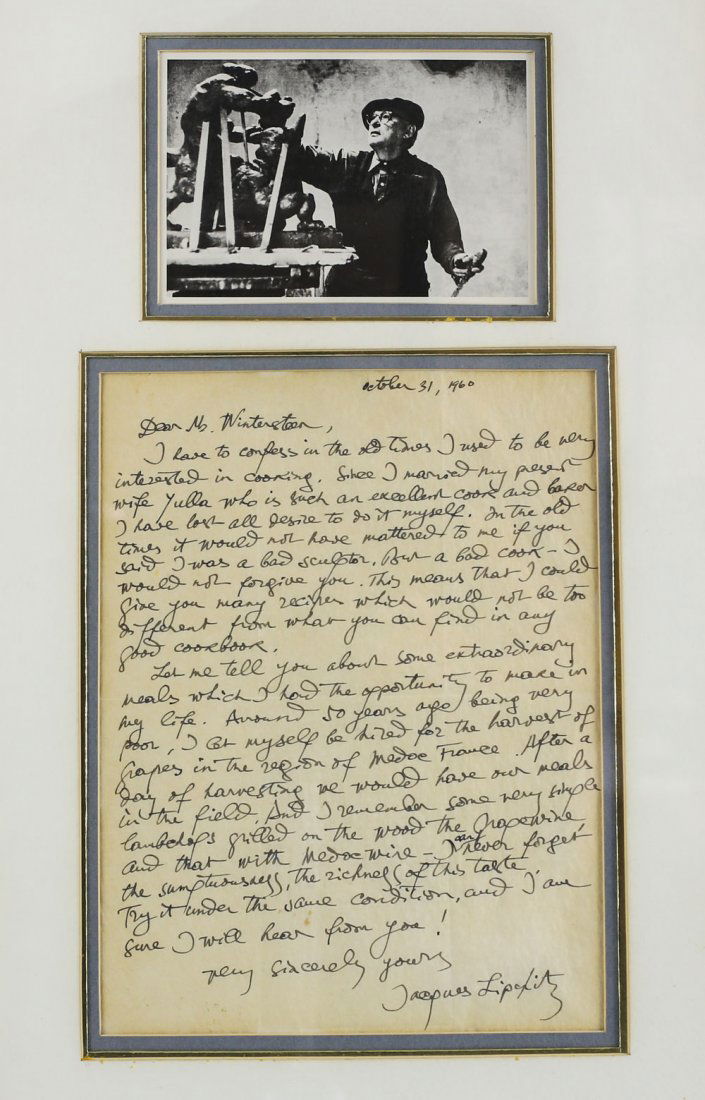 October 31, 1960
Dear Ms. Wintersteen,
I have to confess in the old times I used to be very
interested in cooking. Since I married my present
wife Yulla who is such an excellent cook and baker
I have lost all desire to do it myself. In the old
times it would not have mattered to me if you
said I was a bad sculptor, But a bad cook – I
would not forgive you. This means that I could
give you many recipes which would not be too
different from what you can find in any
good cookbook.
Let me tell you about some extraordinary
meals which I had the opportunity to make in
my life. Around 50 years ago, being very
poor, I let myself be hired for the harvest of
grapes in the region of Medoc France. After a
day of harvesting we would have our meals
in the field. And I remember some very simple
lambchops grilled on the wood the grapewine,
and that with Medoc wine – I can never forget
the sumptuousness, the richness of this taste.
Try it under the same condition, and I am
sure I will hear from you!
very sincerely yours
Jacques Lipchitz